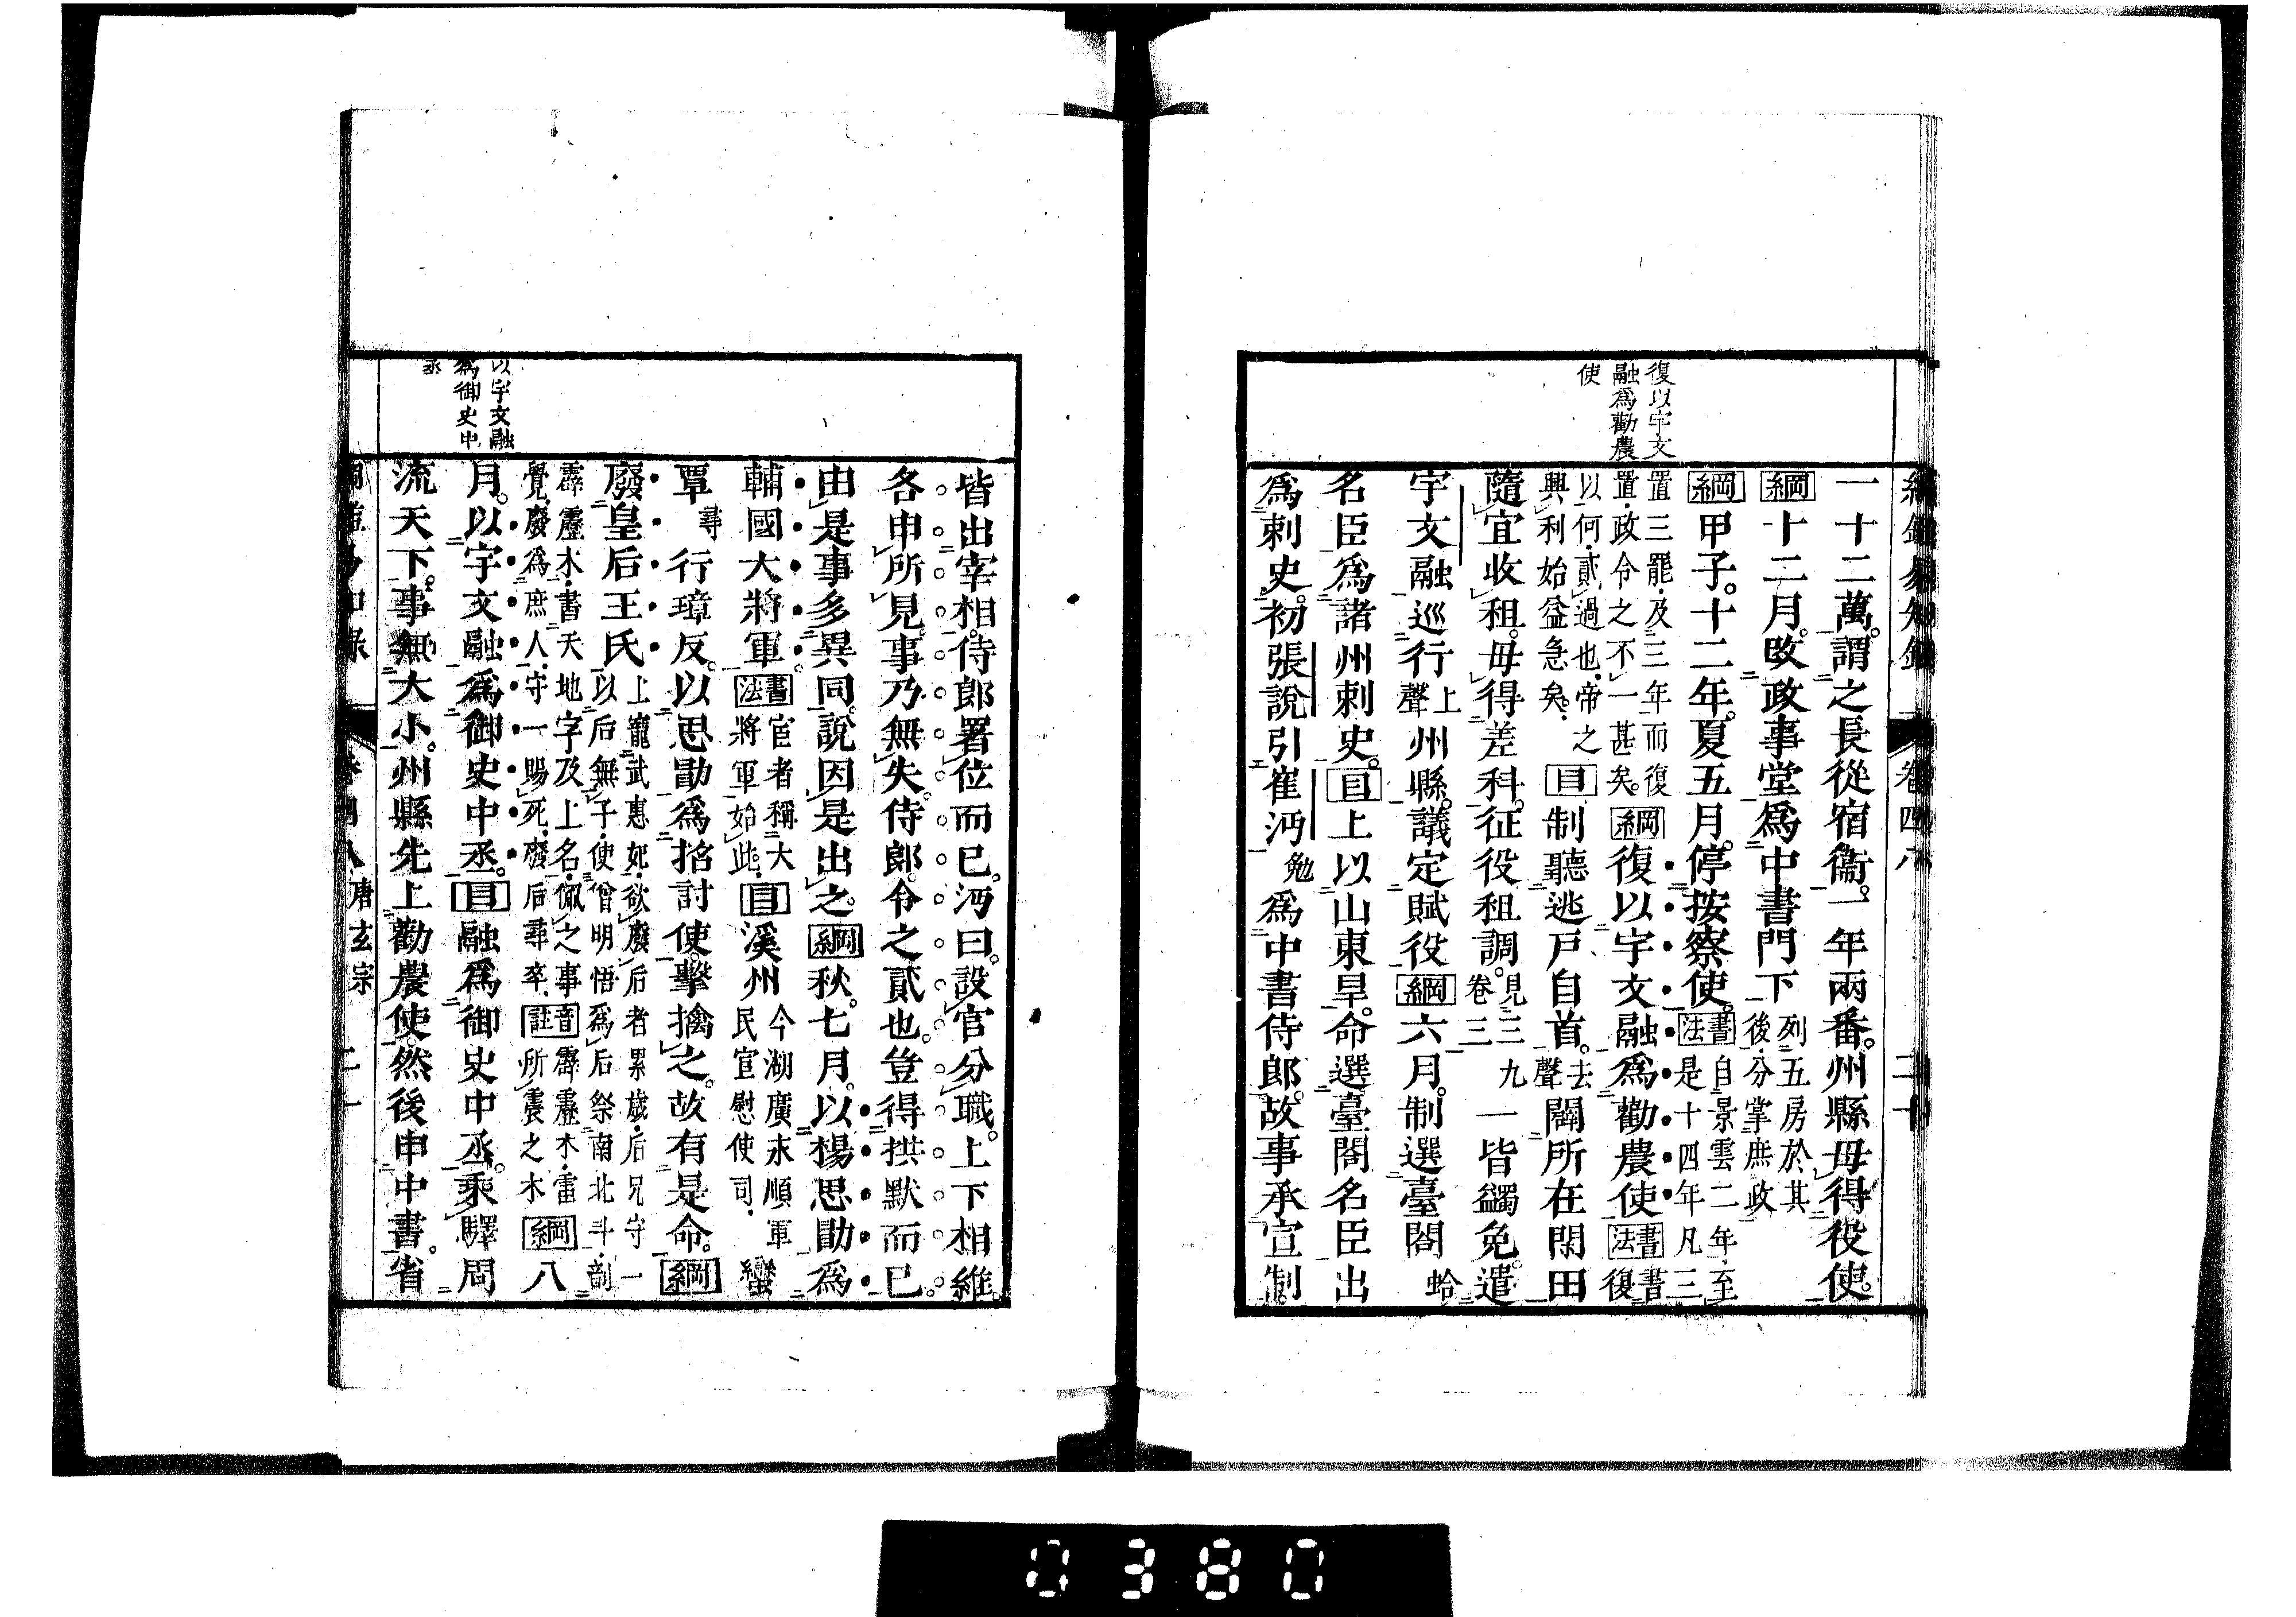 復以宇文
融爲勸農
使
一十二萬。謂之長從宿衞。一年兩番。州縣毋得役使。
綱十二月。改政事堂爲中書門下列五房於其後、分掌庶政
綱甲子。十二年。夏五月。停按察使。書法自景雲二年、至是十四年凡三
置三罷、及三年而復置、政令之不一甚矣。綱復以宇文融爲勸農使書法書復
以何、貳過也、帝之興利始益急矣、目制聽逃戸自首。去聲闢所在閑田
隨宜收租。毋得差科。征役租調。見三九卷三一皆蠲免。遣
宇文融巡行上聲州縣。議定賦役綱六月。制選臺閣蛤
名臣爲諸州刺史。目上以山東旱。命選臺閣名臣出
爲刺史。初張說引崔沔勉爲中書侍郎。故事承宣制。
卷四八
二十
皆出宰相。侍郎署位而已。沔曰。設官分職。上下相維。
各申所見。事乃無失。侍郎。令之貳也。豈得拱默而已。
由是事多異同。說因是出之。綱秋。七月。以楊思勖爲
輔國大將軍。書法宦者稱大將軍始此、目溪州今湖廣永順軍民宣慰使司、蠻
覃尋行璋反。以思勖爲招討使。擊擒之。故有是命。綱
廢皇后王氏上寵武惠妃、欲廢后者累歲、后兄守一以后無子、使僧明悟爲后祭南北斗、剖
霹靂木、書天地字及上名、佩之事覺、廢爲庶人、守一賜死、廢后尋卒、音註霹靂木、雷所震之木綱八
月。以宇文融爲御史中丞。目融爲御史中丞。乘驛周
流天下。事無大小。州縣先上勸農使。然後申中書。省
以宇文融
爲御史中
丞
唐玄宗